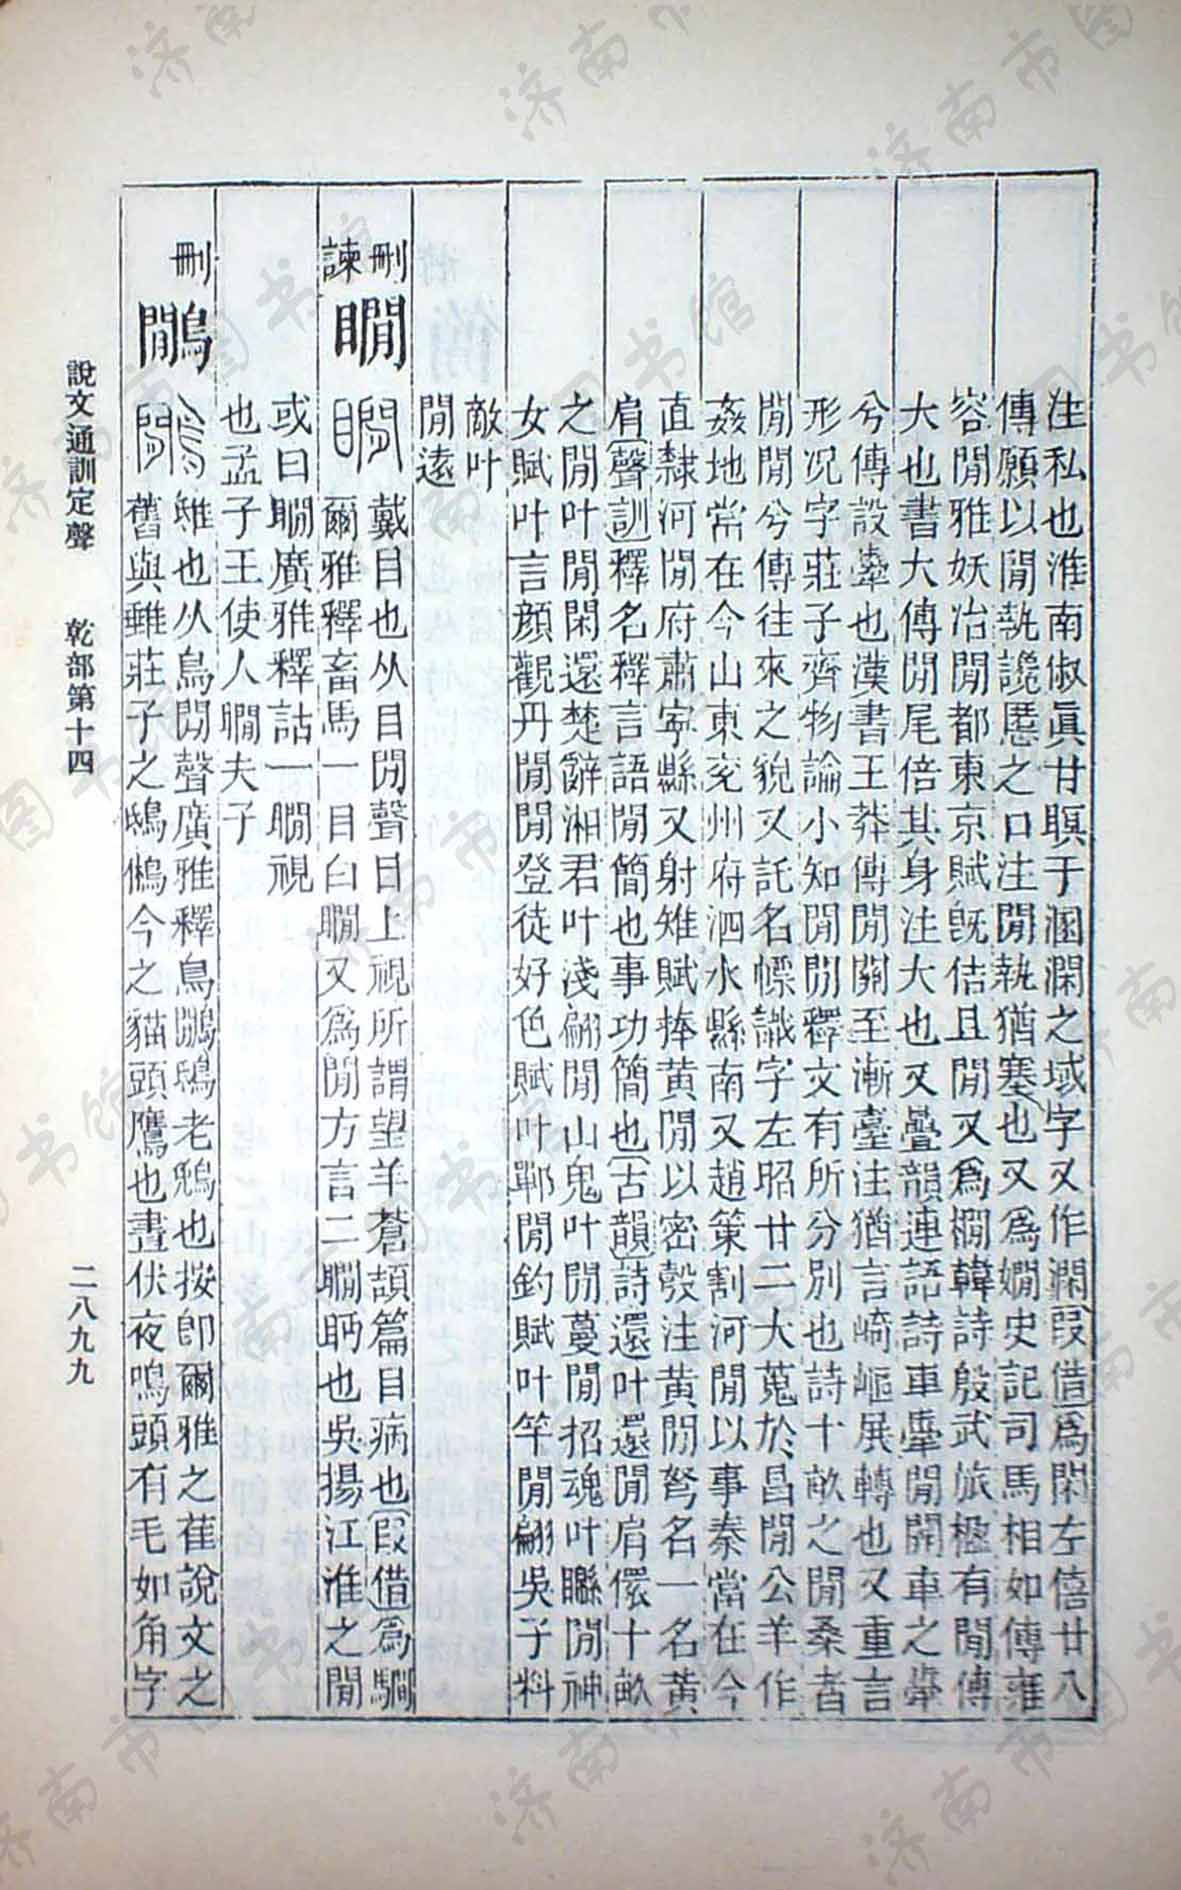 注私也淮南俶真甘瞑于溷澖之域字又作澖叚借爲閑左僖廿八
傳願以閒執讒慝之口注閒執猶塞也又爲嫺史記司馬相如傳雍
容閒雅妖冶閒都東京賦旣佶且閒又爲橺韓詩殷武旅楹有閒傳
大也書大傳閒尾倍其身注大也又疊韻連語詩車舝閒關車之舝
兮傳設舝也漢書王莽傳閒關至漸臺注猶言崎嶇展轉也又重言
形况字莊子齊物論小知閒閒釋文有所分別也詩十畝之閒桑者
閒閒兮傳往來之皃又託名幖識字左昭廿二大蒐於昌閒公羊作
姦地當在今山東兖州府泗水縣南又趙策割河閒以事秦當在今
直隸河閒府肅寧縣又射雉賦捧黄閒以密彀注黄閒弩名一名黄
肩聲訓釋名釋言語閒簡也事功簡也古韻詩還叶還閒肩儇十畝
之閒叶閒閑還楚辭湘君叶淺翩閒山鬼叶閒蔓閒招魂叶㘝閒神
女賦叶言顏觀丹閒閒登徒好色賦叶鄲閒釣賦叶竿閒翩吳子料
敵叶
閒遠
刪
諫
瞯
戴目也从目閒聲目上視所謂望羊蒼頡篇目病也叚借爲騆
爾雅釋畜馬一目白瞯又爲閒方言二瞯眄也吳揚江淮之閒
或曰瞯廣雅釋詁一瞯視
也孟子王使人瞯夫子
刪
鷳
鴟也从鳥閒聲廣雅釋鳥鷳鴟老鵵也按卽爾雅之萑說文之
舊與雖莊子之鴟鵂今之貓頭鷹也晝伏夜鳴頭有毛如角字
說文通訓定聲 乾部第十四 二八九九